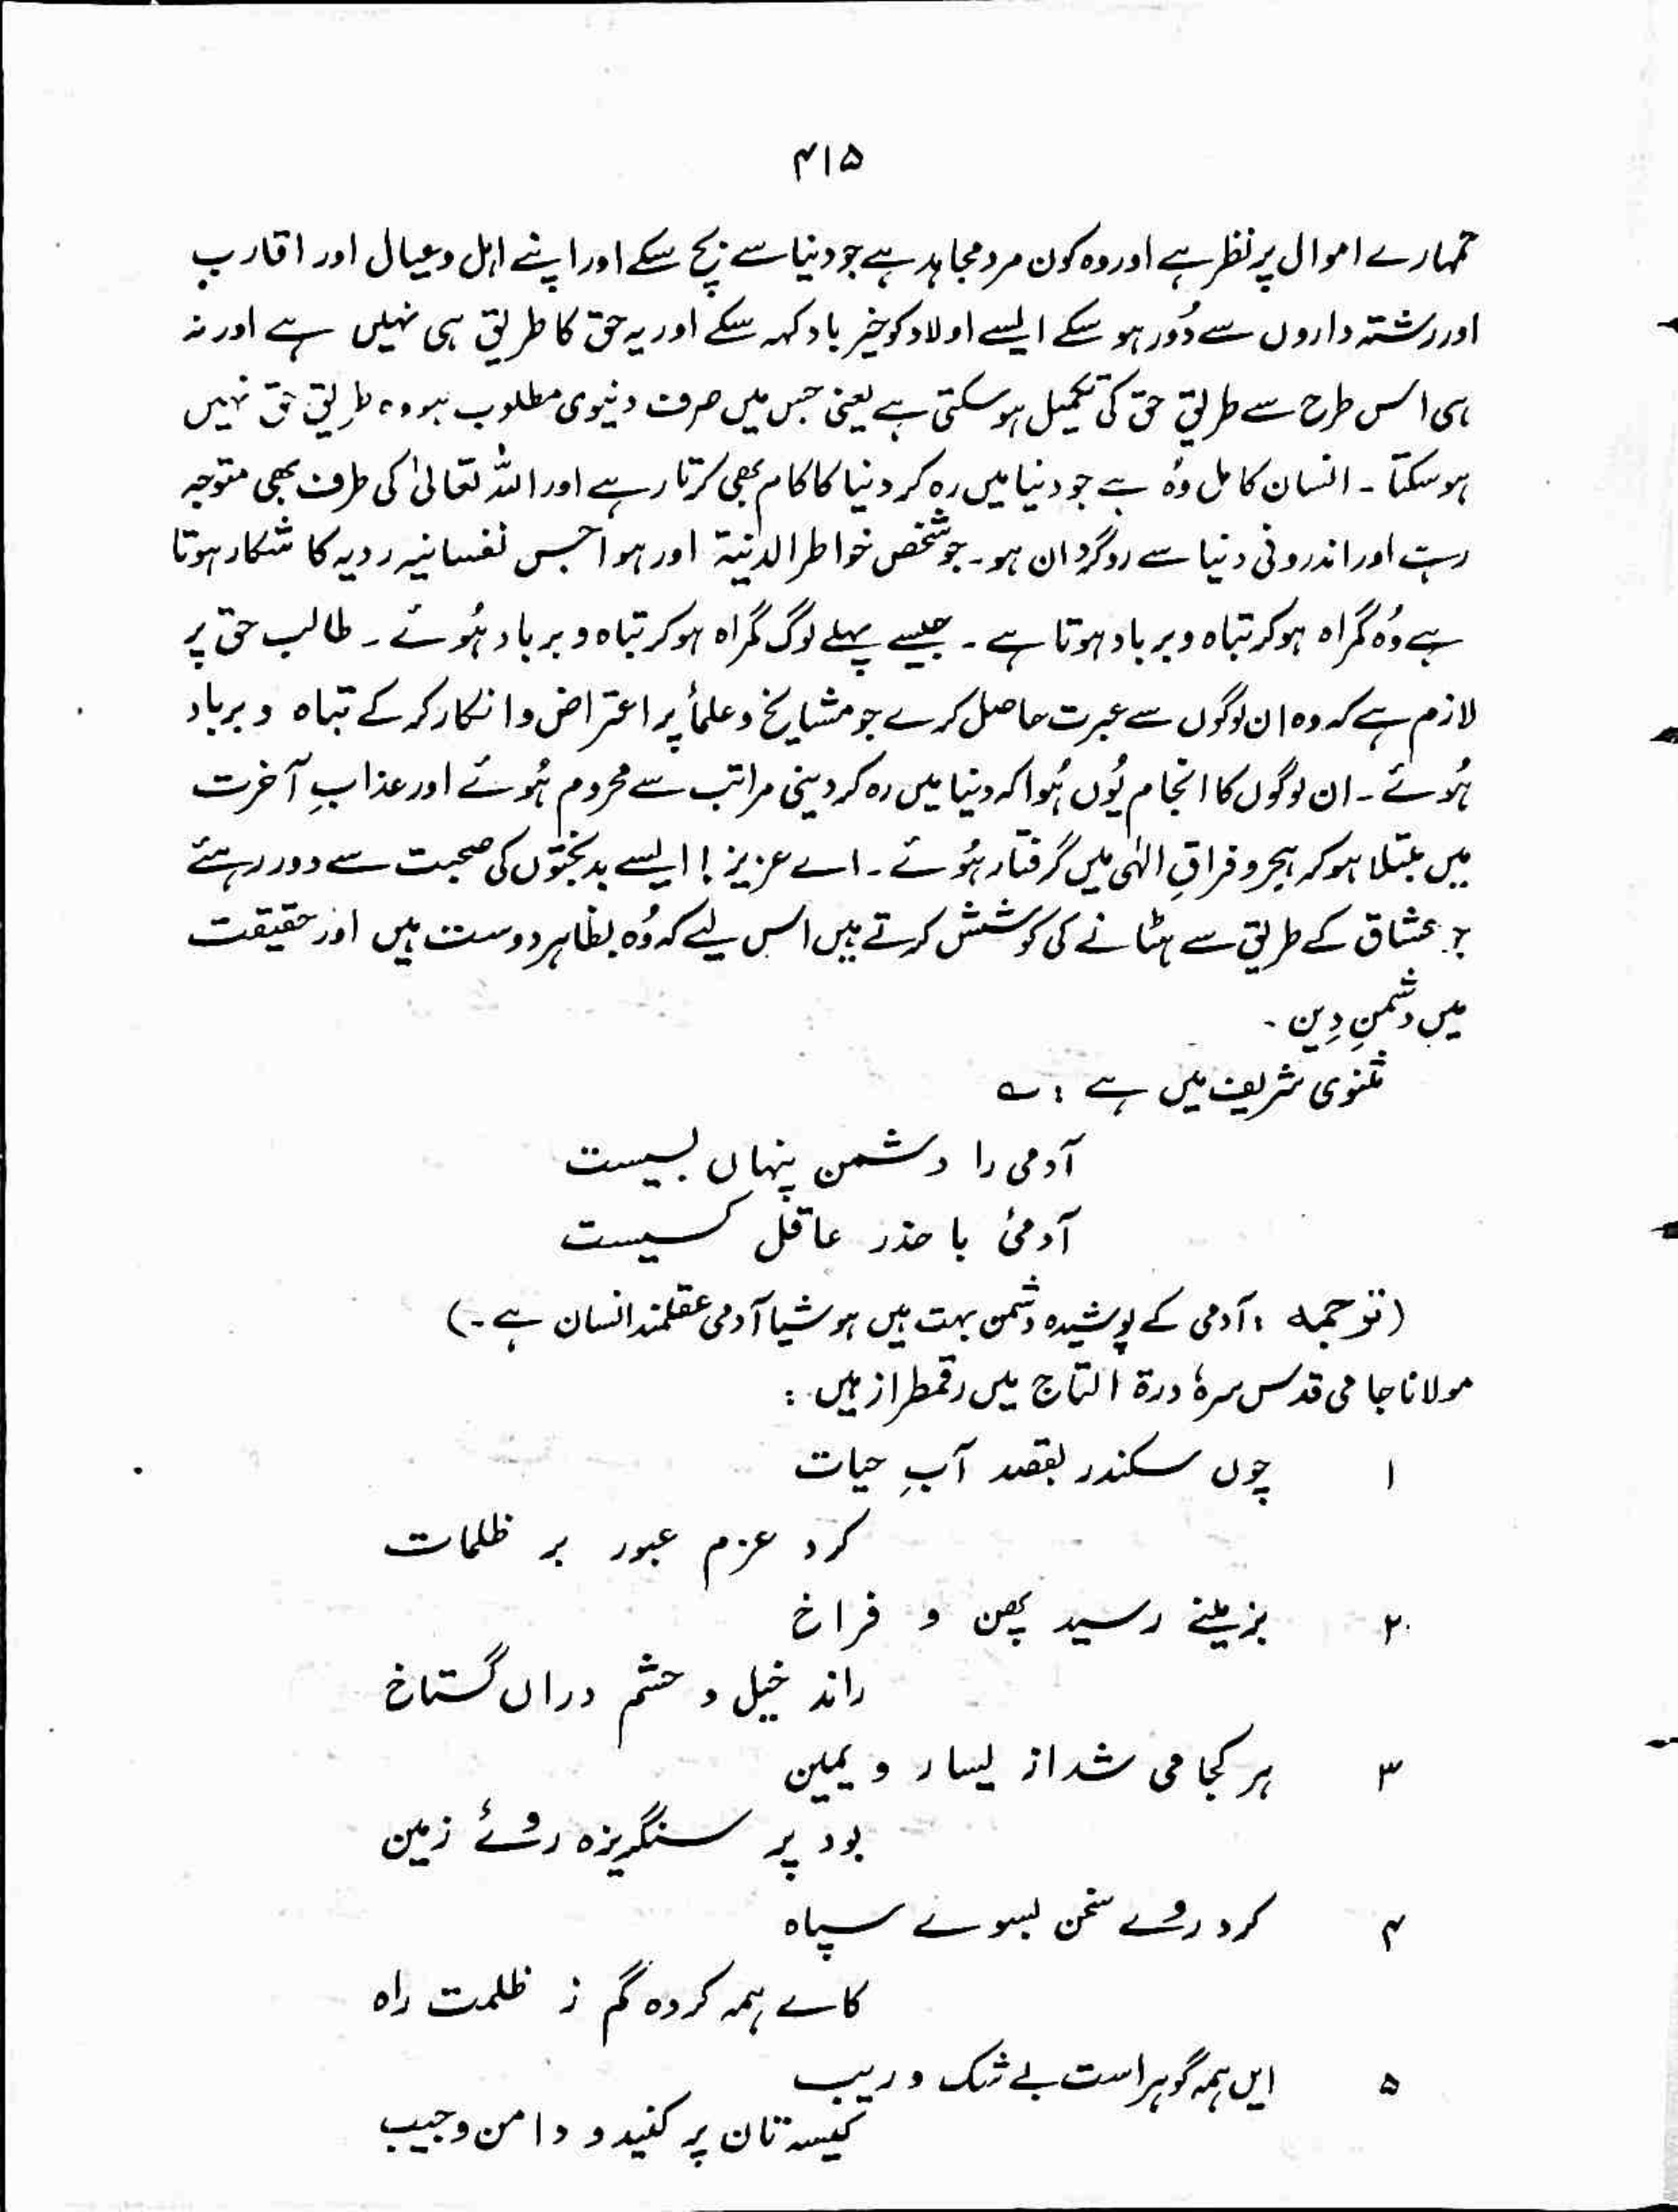 ۴۱۵
تمہارے اموال پر نظر ہے اور وہ کون مرد مجاہد ہے جو دنیا سے بچ سکے اور اپنے اہل و عیال اور اقارب
اور رشتہ داروں سے دُور ہو سکے ایسے اولاد کو خیر باد کہہ سکے اور یہ حق کا طریق ہی نہیں ہے اور نہ
ہی اس طرح سے طریقِ حق کی تکمیل ہو سکتی ہے یعنی جس میں صرف دنیوی مطلوب ہو وہ طریق حق نہیں
ہو سکتا ۔ انسان کامل وُہ ہے جو دنیا میں رہ کر دنیا کا کام بھی کرتا رہے اور اللہ تعالیٰ کی طرف بھی متوجہ
رہے اور اندرونی دنیا سے روگردان ہو ۔ جو شخص خواطر الدنیۃ اور ہواجس نفسانیہ ردیہ کا شکار ہوتا
ہے وُہ گمراہ ہو کر تباہ و برباد ہوتا ہے ۔ جیسے پہلے لوگ گمراہ ہو کر تباہ و برباد ہُوئے ۔ طالب حق پر
لازم ہے کہ وہ ان لوگوں سے عبرت حاصل کرے جو مشایخ و علمأ پر اعتراض و انکار کر کے تباہ و برباد
ہُوئے ۔ ان لوگوں کا انجام یُوں ہُوا کہ دنیا میں رہ کر دینی مراتب سے محروم ہُوئے اور عذابِ آخرت
میں مبتلا ہو کر ہجر و فراقِ الٰہی میں گرفتار ہُوئے ۔ اے عزیز ! ایسے بدبختوں کی صحبت سے دور رہئے
جو عشاق کے طریق سے ہٹانے کی کوشش کرتے ہیں اس لیے کہ وُہ بظاہر دوست ہیں اور حقیقت
میں دشمنِ دِین ۔
مثنوی شریف میں ہے : ؎
آدمی را دشمن پنہاں بسیست
آدمئ با حذر عاقل کسیست
(ترجمہ : آدمی کے پوشیدہ دشمن بہت ہیں ہوشیا آدمی عقلمند انسان ہے ۔)
مولانا جامی قدس سرہٗ درۃ التاج میں رقمطراز ہیں :
۱ چوں سکندر بقصد آبِ حیات
کرد عزم عبور بر ظلمات
۲ بزمینے رسید پھن و فراخ
راند خیل و حشم دراں گستاخ
۳ ہر کجا می شد از یسار و یمین
بود پر سنگریزہ روئے زمین
۴ کرد روے سخن بسوے سپاہ
کاے ہمہ کردہ گم ز ظلمت راہ
۵ ایں ہمہ گوہر است بے شک و ریب
کیسہ تان پر کنید و دامن و جیب